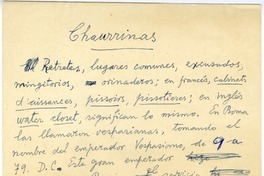 Chaurrinas
Retretes, lugares comunes, excusados,
mingitorios, orinaderos; en francés, cabinets
d'aissances, pissoirs, pissotieres; en inglés
water closet, significan lo mismo. En Roma
las llamaron vesparianas, tomando el
nombre del emperador Vespasiano, de 9 a
79. D.C. Este gran emperador
servicio